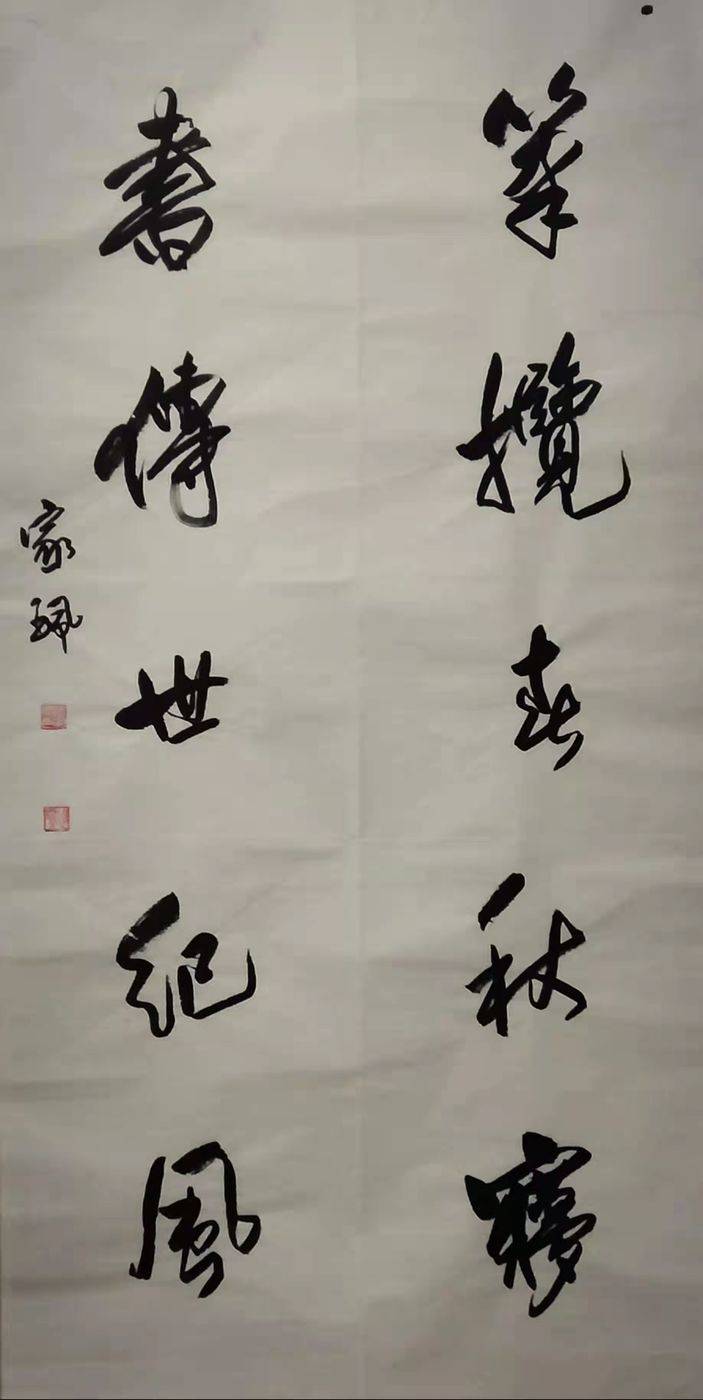 筆攬春秋夢
書傳世紀風
家珮